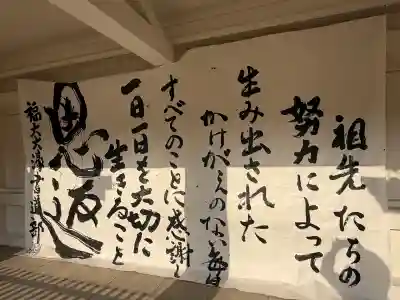 祖先たちの
努力によって
生み出された
かけがえのない毎日
すべてのことに感謝し
一日一日を大切に
生きること
恩返
福大大濠書道部